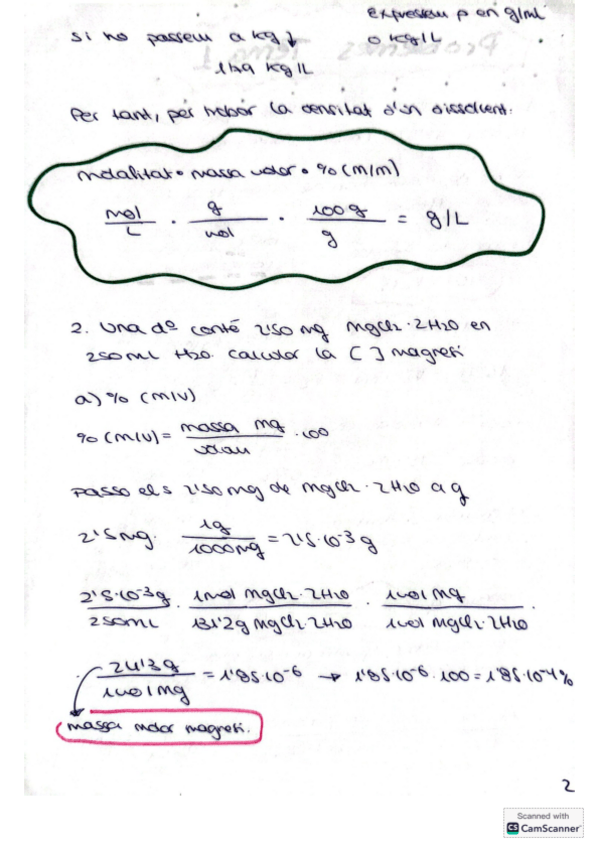 Expressem ρ en g/ml
si no passem a kg ↓ o kg/L
1'129 kg/L
Per tant, per trobar la densitat d'un dissolvent:
molalitat · massa molar · % (m/m)
mol/L · g/mol · 100g/g = g/L
2. Una dº conté 2'50 mg MgCl2·2H2O en
250ml H2O. calcular la [ ] magnesi
a) % (m/v)
% (m/v) = massa mg/volum · 100
Passo els 2'50mg de MgCl2·2H2O a g
2'5mg · 1g/1000mg = 2'5·10⁻³ g
2'5·10⁻³g/250ml · 1mol MgCl2·2H2O/131'2g MgCl2·2H2O · 1mol Mg/1mol MgCl2·2H2O ·
· 24'3g/1mol Mg = 1'85·10⁻⁶ → 1'85·10⁻⁶·100 = 1'85·10⁻⁴%
massa molar magnesi.
2
Scanned with
CS CamScanner